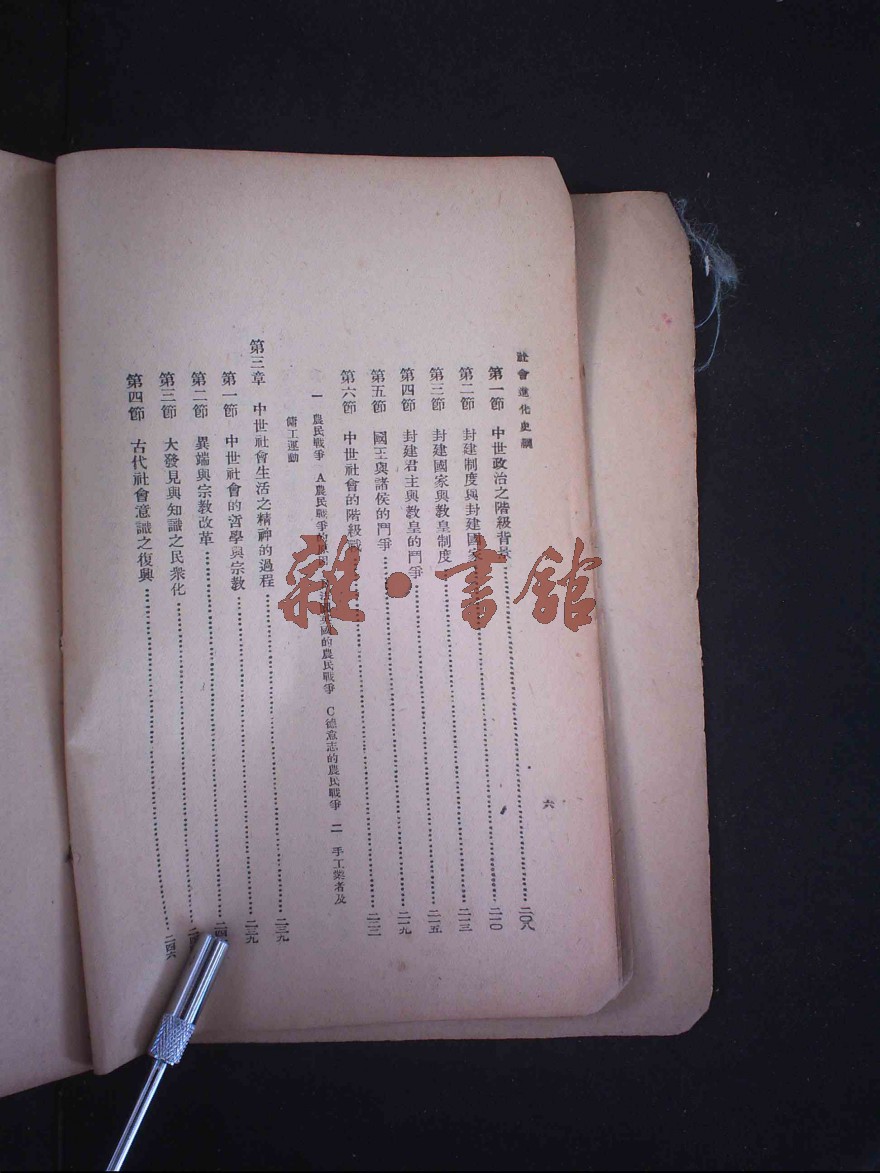 社會進化史綱
六
第一節 中世政治之階級背景…二〇八
第二節 封建制度與封建國家…二一〇
第三節 封建國家與教皇制度…二一三
第四節 封建君主與教皇的鬥爭…二一五
第五節 國王與諸侯的鬥爭…二一九
第六節 中世社會的階級戰…二二二
一 農民戰爭 A農民戰爭的原因 國的農民戰爭 C德意志的農民戰爭 二 手工業者及
傭工運動
第三章 中世社會生活之精神的過程…二三九
第一節 中世社會的哲學與宗教…二三九
第二節 異端與宗教改革…二四
第三節 大發見與知識之民衆化…
第四節 古代社會意識之復興…二四六
雜·書館